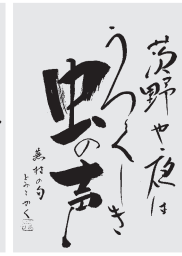 茨野や夜は
うつくしき
虫の声
蕪村の句
とみこかく